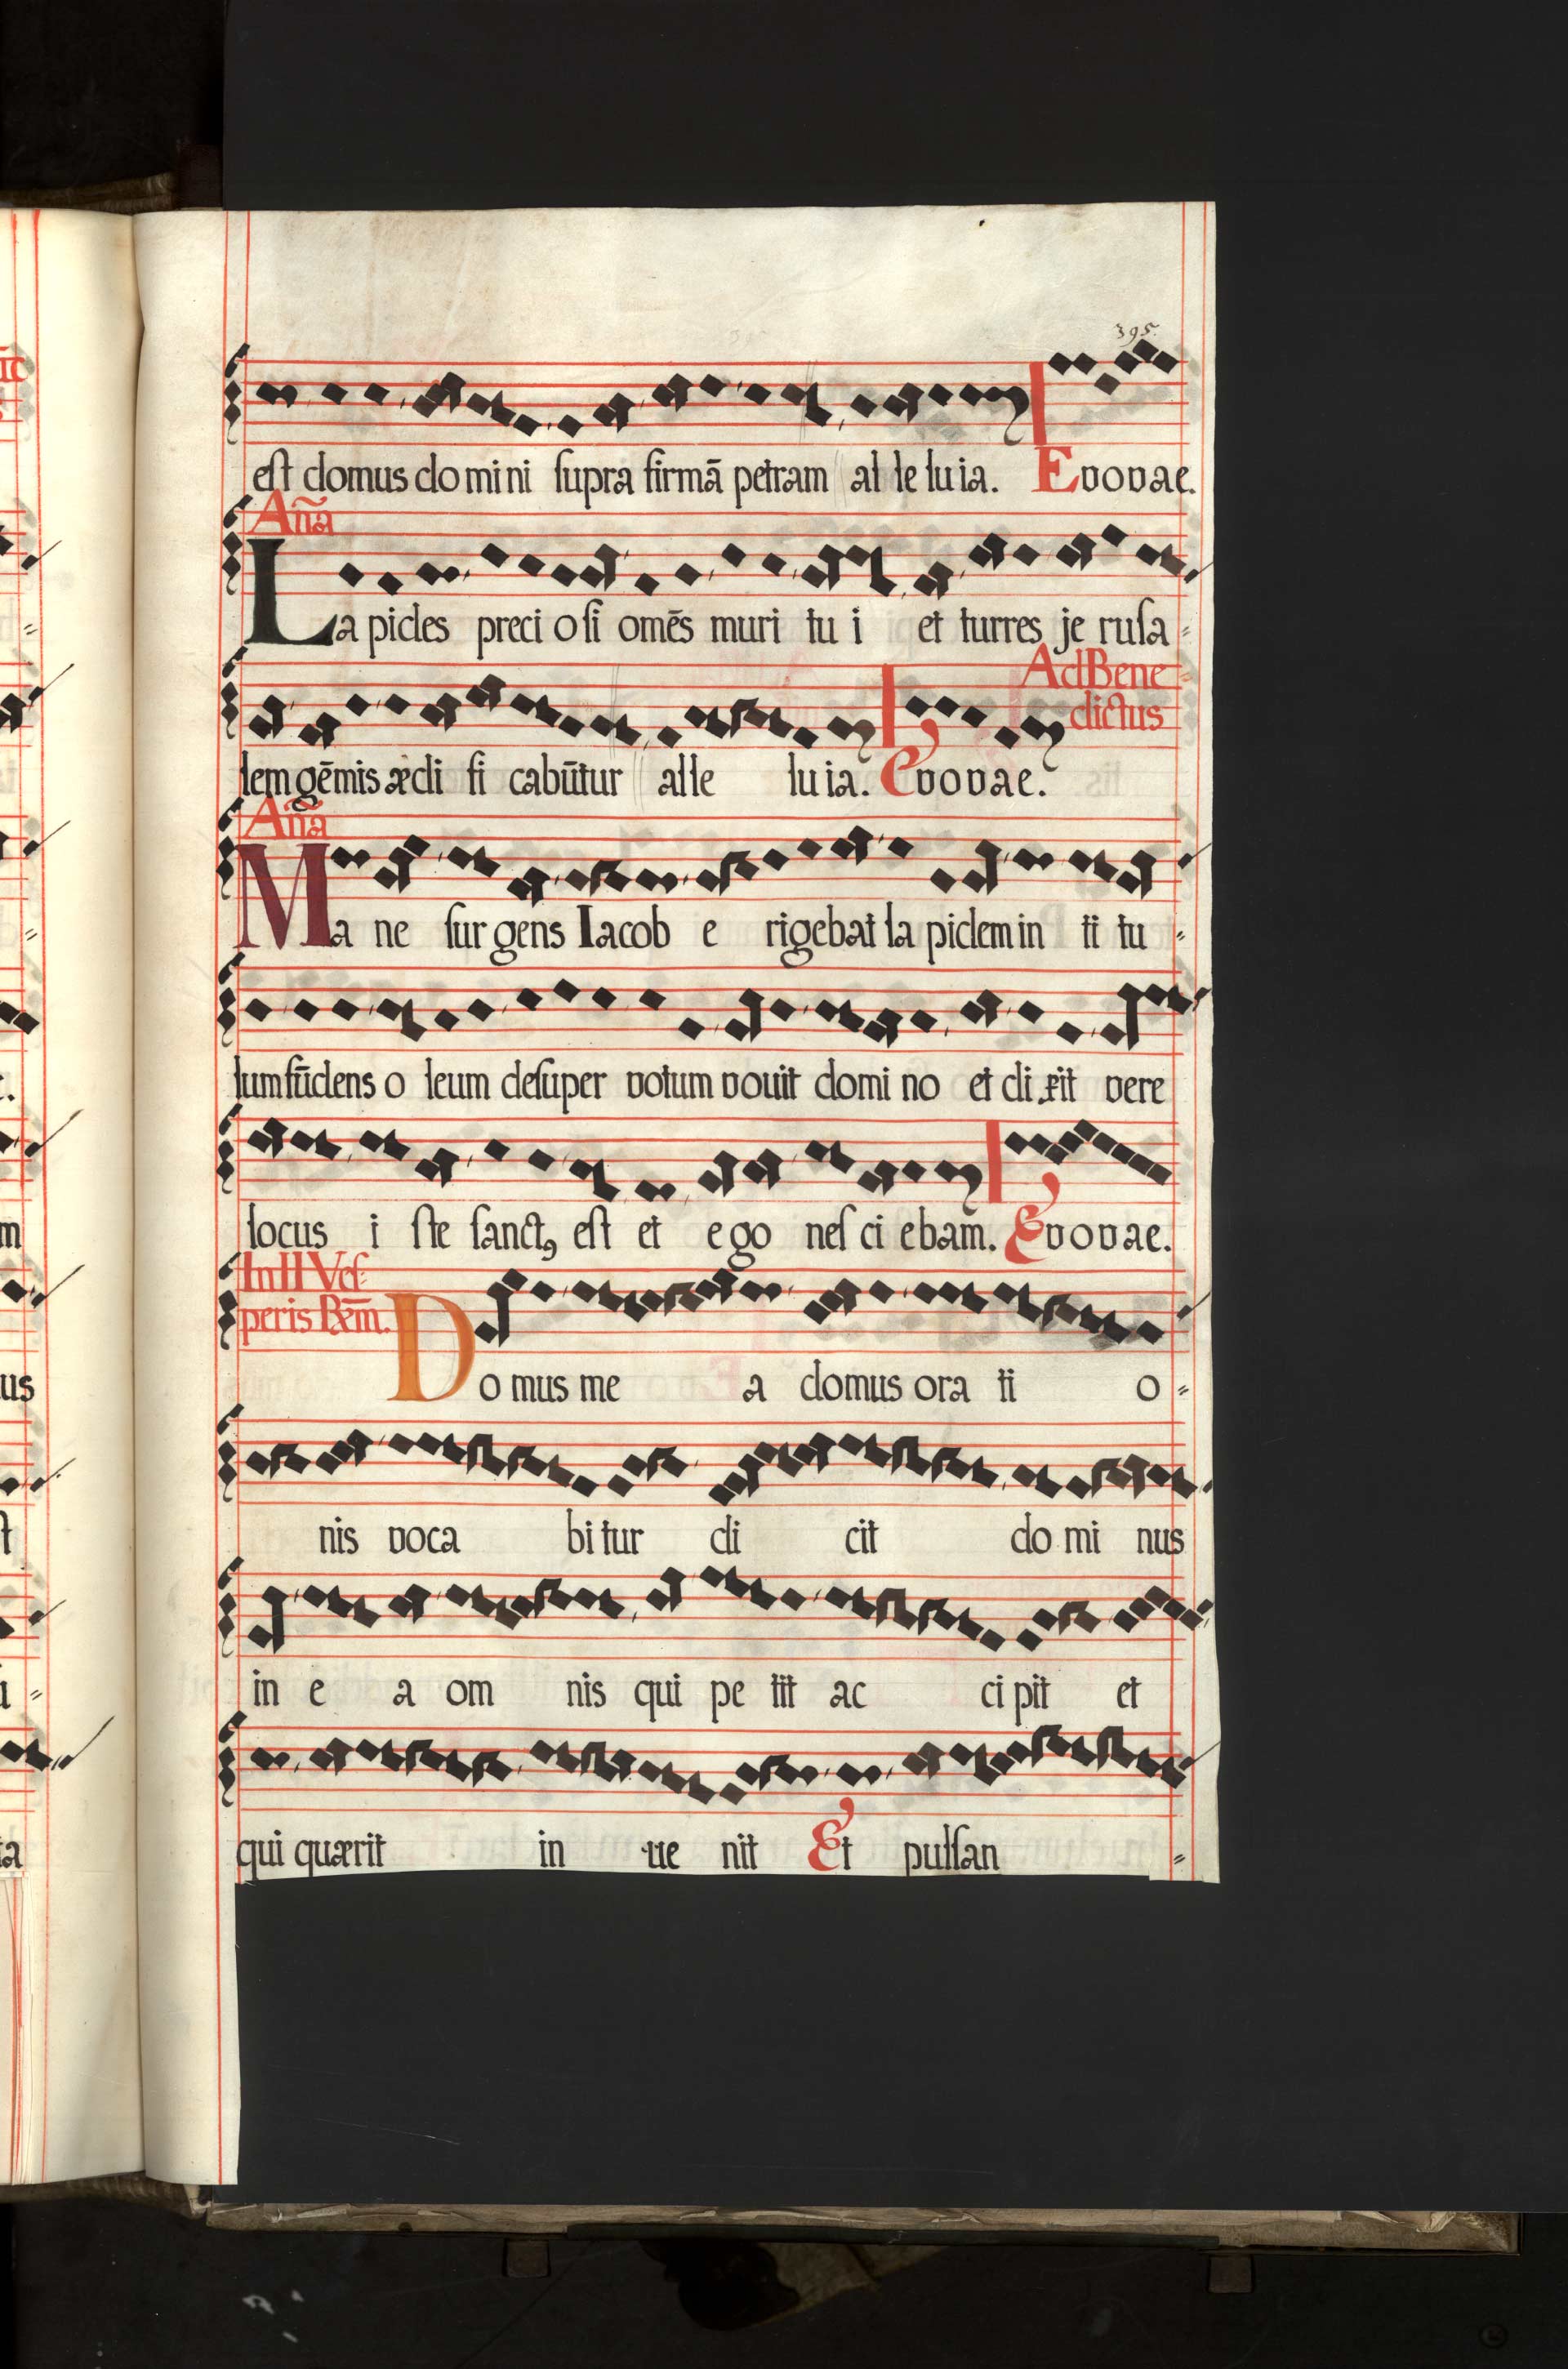 395.
est domus do mi ni supra firmā petram al le lu ia. Evovae.
Añā
La pides preci o si omēs muri tu i et turres je rusa-
Ad Bene
dictus
lem gēmis ædi fi cabūtur alle lu ia. Evovae.
Añā
Ma ne sur gens Iacob e rigebat la pidem in ti tu-
lum fūdens o leum desuper votum vovit domi no et di xit vere
locus i ste sanctꝰ est et e go nes ci ebam. Evovae.
In II Ves-
peris Rm̄.
Do mus me a domus ora ti o-
nis voca bi tur di cit do mi nus
in e a om nis qui pe tit ac ci pit et
qui quærit in ue nit Et pulsan-